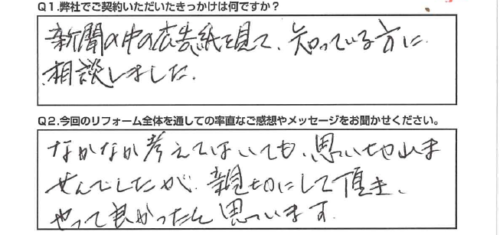 Q1.弊社でご契約いただいたきっかけは何ですか?
新聞の中の広告紙を見て、知っている方に
相談しました.
Q2.今回のリフォーム全体を通しての率直なご感想やメッセージをお聞かせください。
なかなか考えてはいても、思い切れま
せんでしたが、親切にして頂き、
やって良かったと思います.